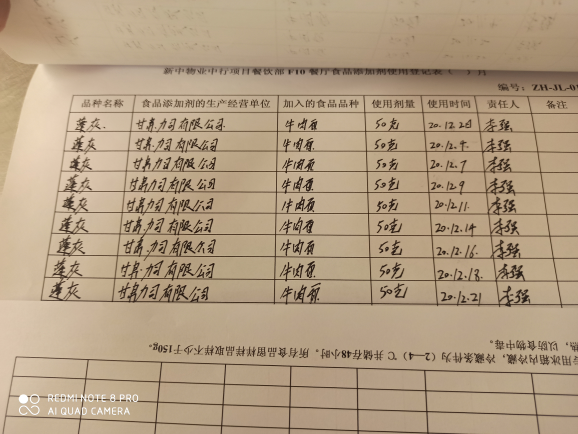 新中物业中行项目餐饮部F10餐厅食品添加剂使用登记表( )月
编号：ZH-JL-0
品种名称 食品添加剂的生产经营单位 加入的食品品种 使用剂量 使用时间 责任人 备注
蓬灰 甘肃力司有限公司 牛肉面 50克 李强
蓬灰 甘肃力司有限公司 牛肉面 50克 李强
蓬灰 甘肃力司有限公司 牛肉面 50克 20.12.7 李强
蓬灰 甘肃力司有限公司 牛肉面 50克 20.12.9 李强
蓬灰 甘肃力司有限公司 牛肉面 50克 20.12.11 李强
蓬灰 甘肃力司有限公司 牛肉面 50克 20.12.14 李强
蓬灰 甘肃力司有限公司 牛肉面 50克 20.12.16 李强
蓬灰 甘肃力司有限公司 牛肉面 50克 20.12.18 李强
蓬灰 甘肃力司有限公司 牛肉面 50克 20.12.21 李强
用冰箱内冷藏，冷藏条件为（2—4）℃ 并储存48小时。所有食品留样样品取样不少于150g。
以防食物中毒。
REDMI NOTE 8 PRO
AI QUAD CAMERA